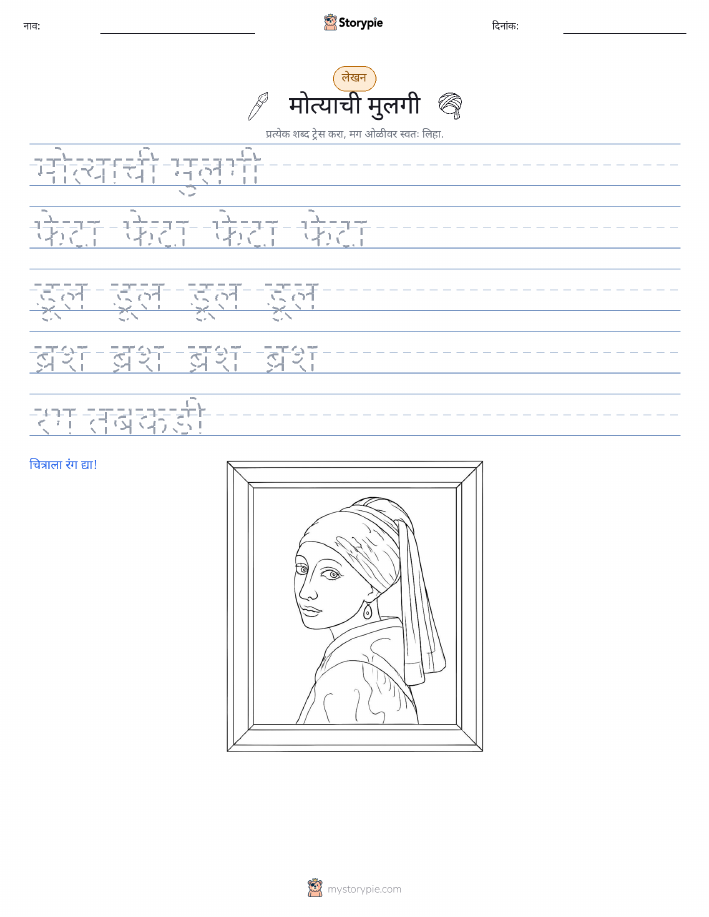 नाव:
Storypie
दिनांक:
लेखन
मोत्याची मुलगी
प्रत्येक शब्द ट्रेस करा, मग ओळीवर स्वतः लिहा.
मोत्याची मुलगी
फेटा फेटा फेटा फेटा
डूल डूल डूल डूल
ब्रश ब्रश ब्रश ब्रश
रंग तबकडी
चित्राला रंग द्या!
mystorypie.com